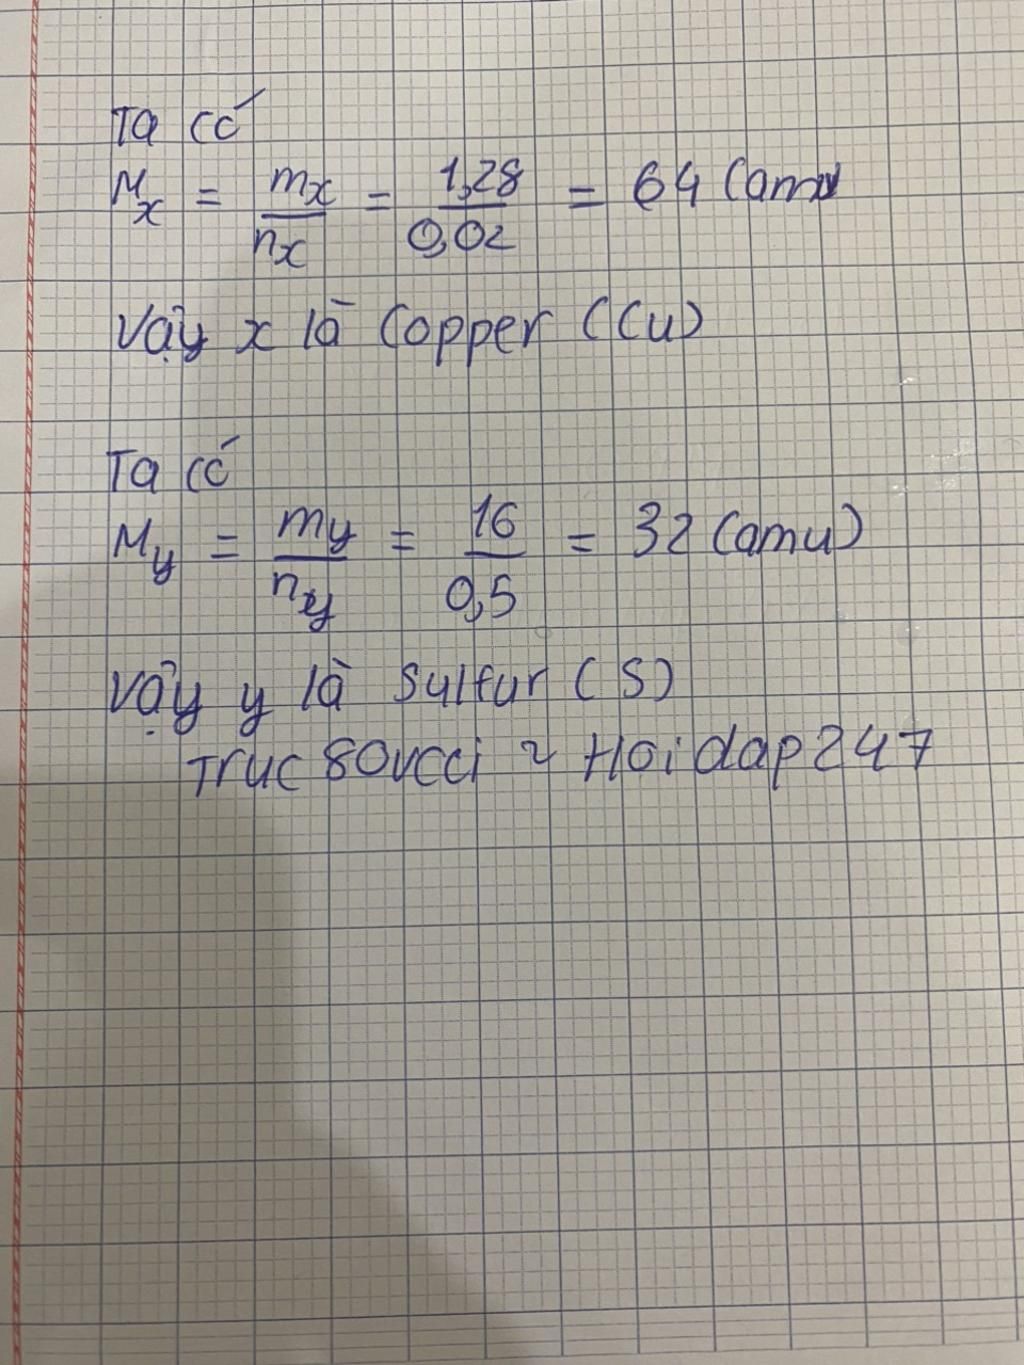 Ta có
Mx = mx/nx = 1,28/0,02 = 64 (amu
Vậy x là Copper (Cu)
Ta có
My = my/ny = 16/0,5 = 32 (amu)
Vậy y là Sulfur (S)
Hoidap247